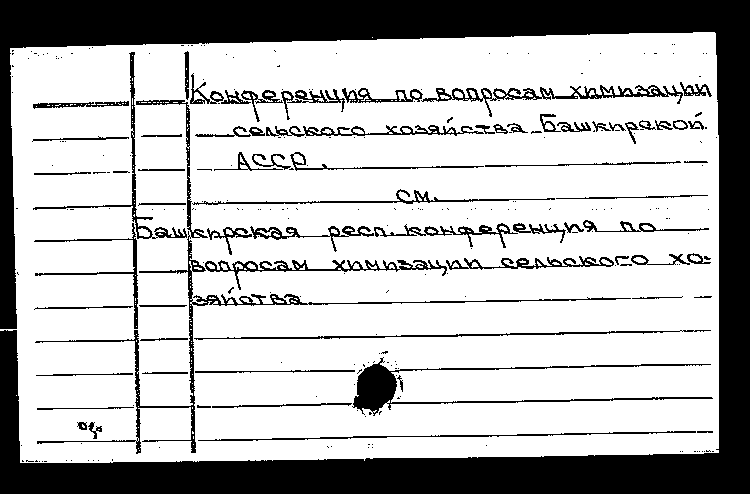 Конференция по вопросам химизации
сельского хозяйства Башкирской
АССР.
см.
Башкирская респ. конференция по
вопросам химизации сельского хо-
зяйства.